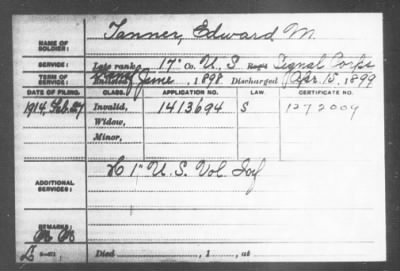 NAME OF SOLDIER: Tanner, Edward M.
SERVICE: Late rank, 17" Co. U. S. Reg't Signal Corps
TERM OF SERVICE: Enlisted June, 1898 Discharged Apr. 15, 1899
DATE OF FILING. CLASS. APPLICATION NO. LAW. CERTIFICATE NO.
1914, Feb. 27 Invalid, 1413694 S 1272009
Widow,
Minor,
ADDITIONAL SERVICES: H 1" U. S. Vol. Inf
REMARKS:
Died , 1 , at